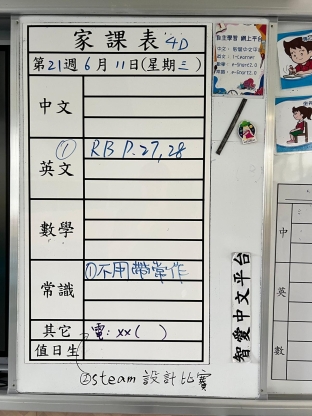 家課表 4D
第21週6月11日(星期三)
中文
① RB P.27,28
英文
數學
①不用帶常作
常識
其它 電: xx( )
值日生
②steam 設計比賽
自主學習 網上平台
智愛中文平台
中
英
數